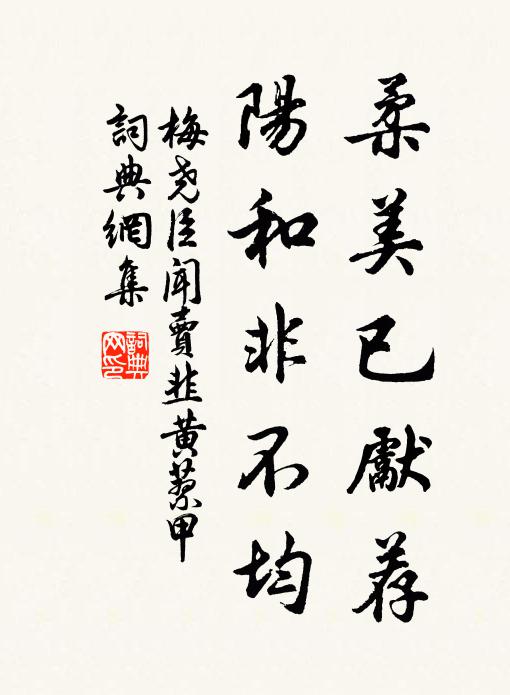 柔美已獻荐
陽和非不均
梅尧臣聞賣韭黄蓼甲
詞典網集
詞典网印